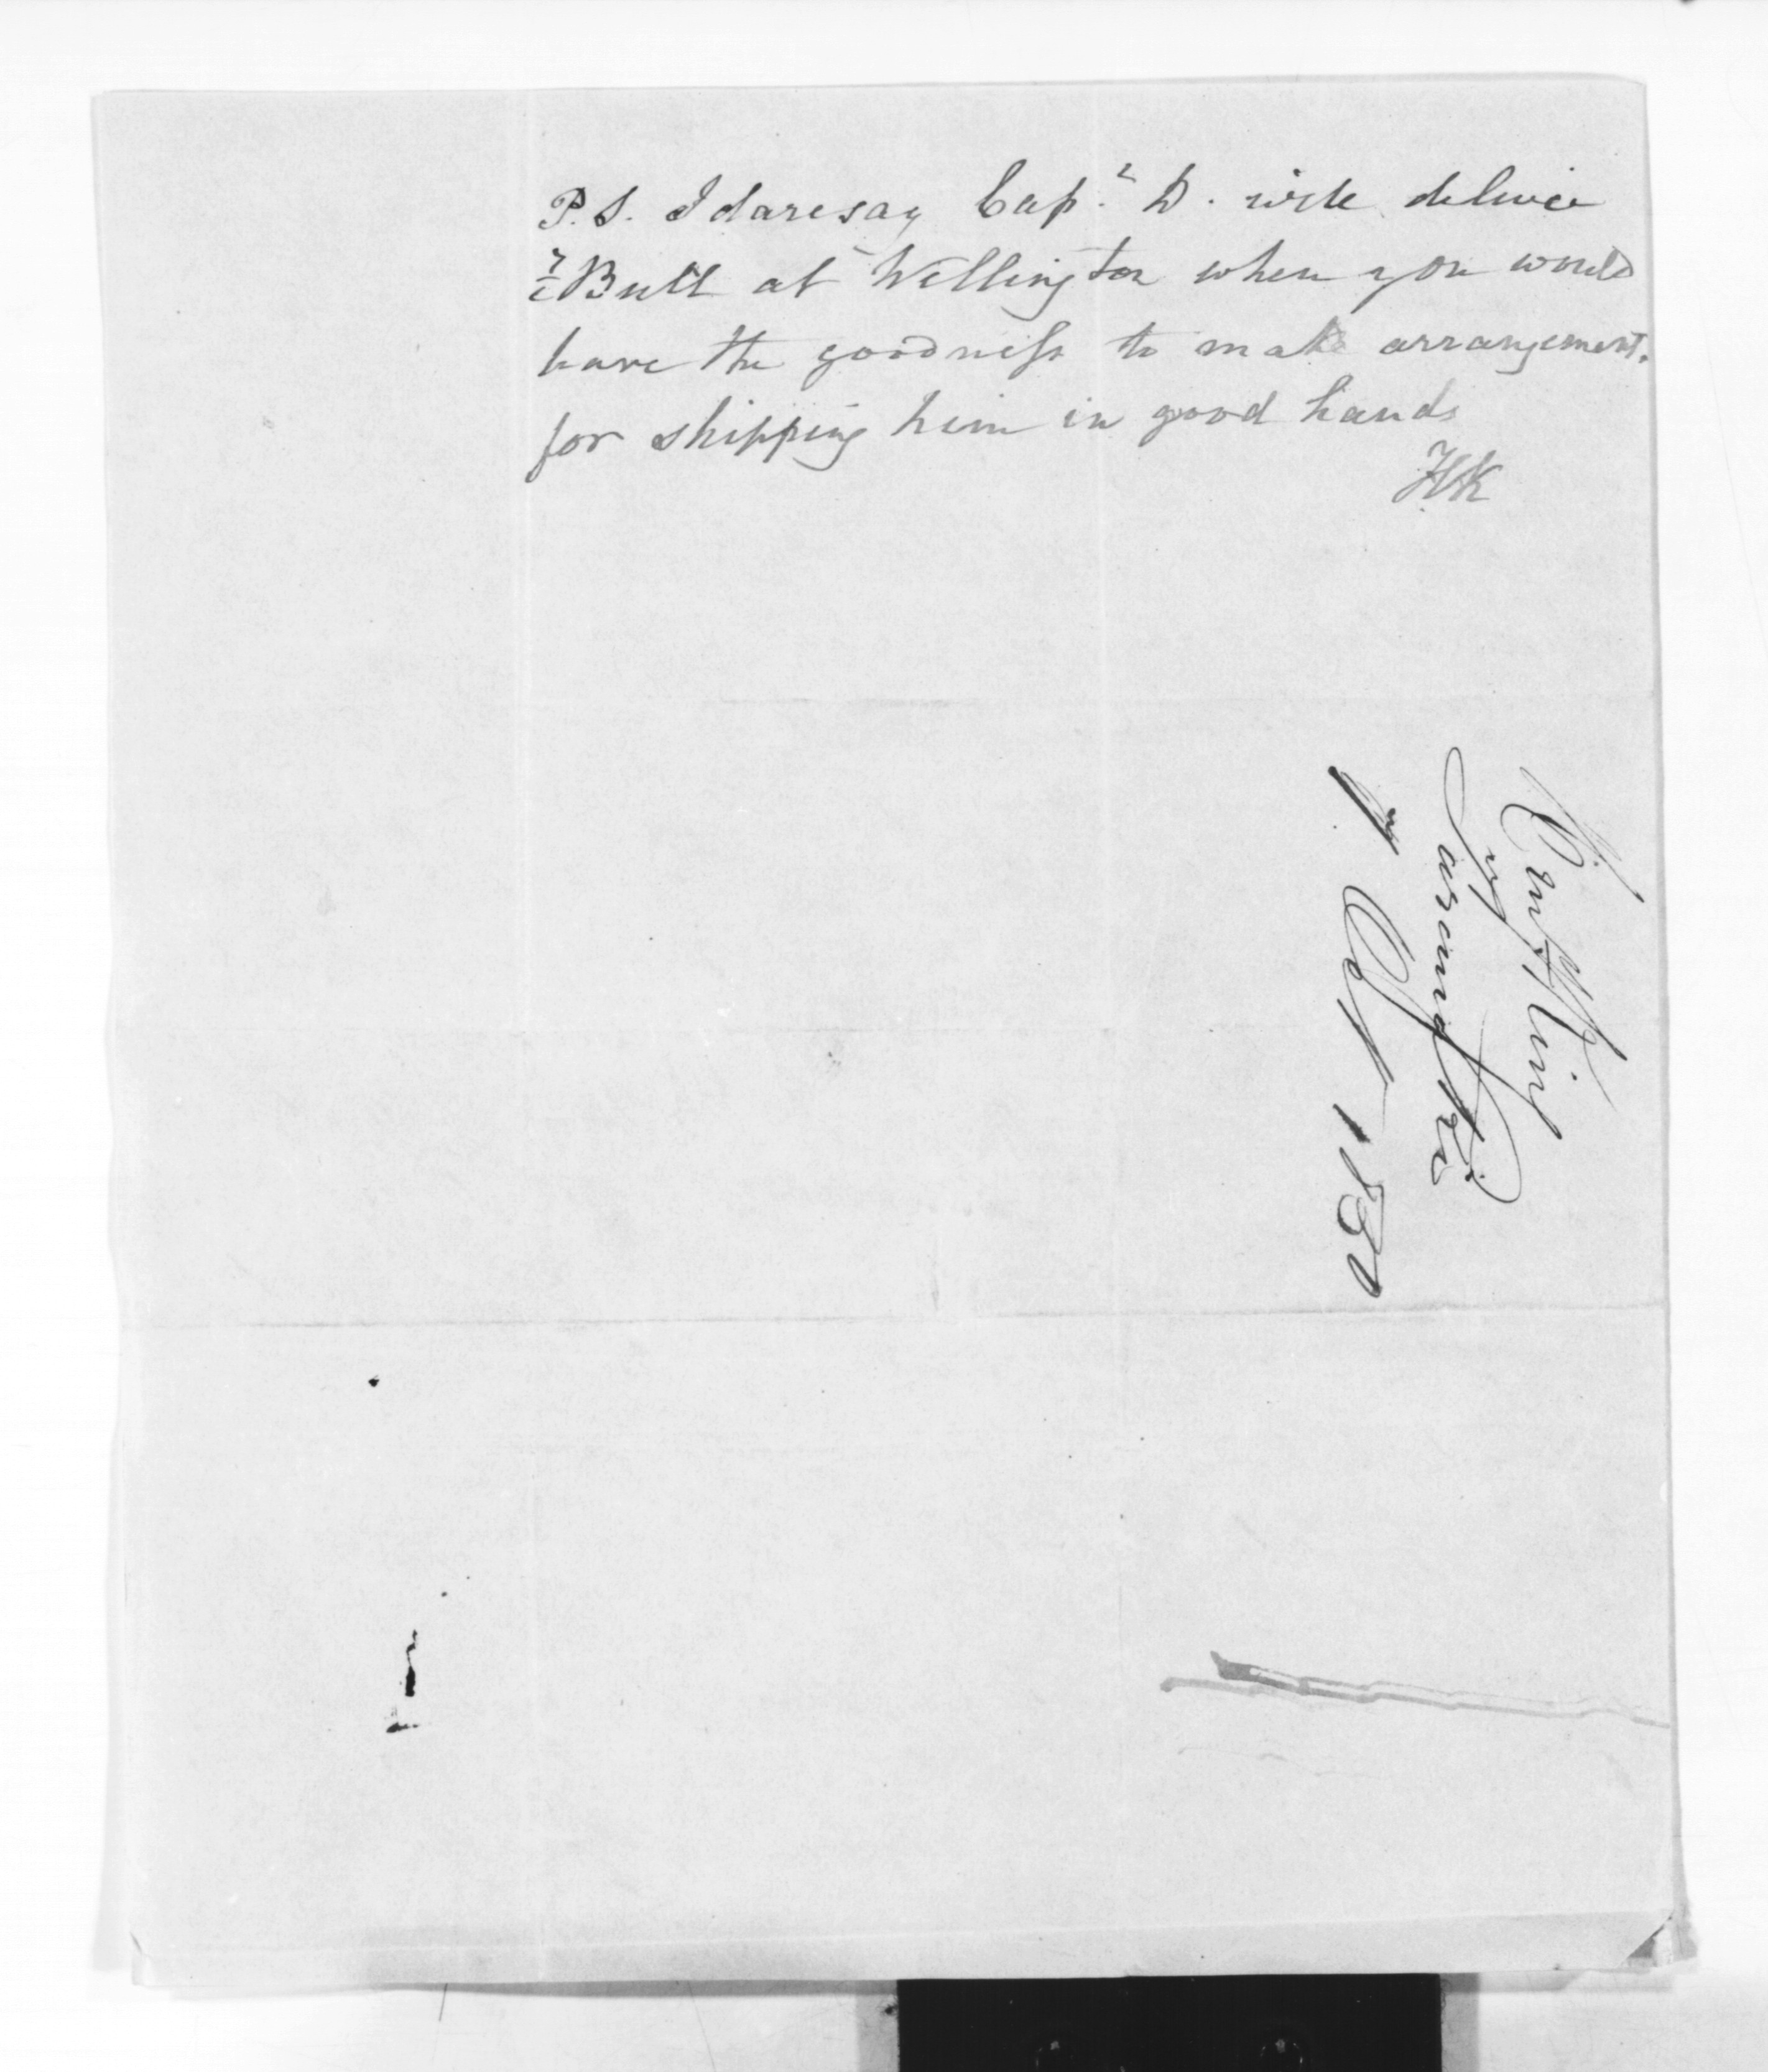 P.S. I daresay Cap.ᵗ D. will deliver
ye Bull at Wellington when you would
have the goodness to make arrangement.
for shipping him in good hands
HK
H. King
Oct 1850